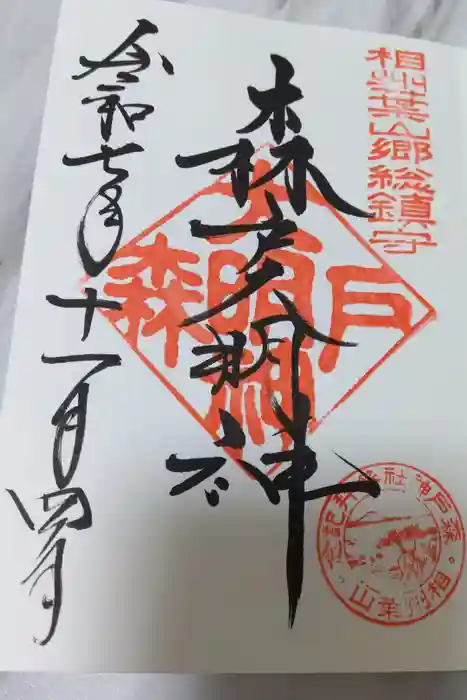 相州葉山郷総鎮守
森戸明神
森戸大明神
令和七年十一月四日
森戸神社参拝記念
相州葉山